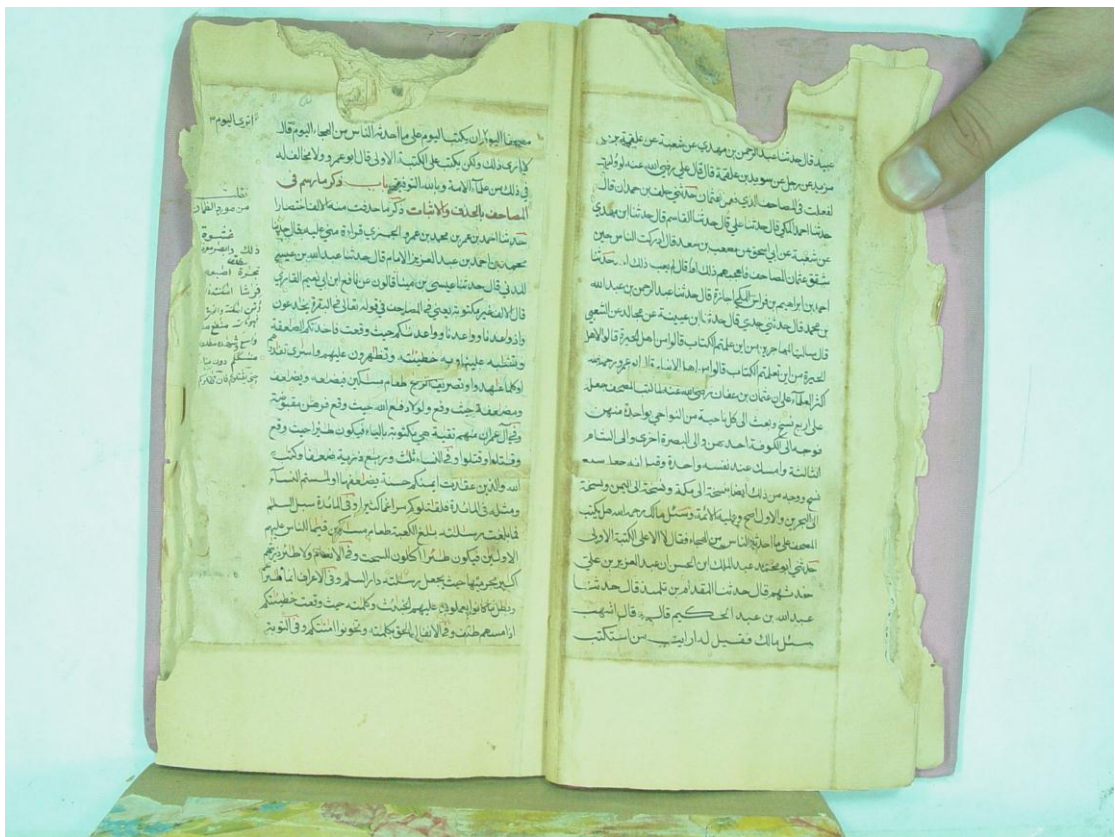 عبيد قال حدثنا عبد الرحمن بن مهدي عن شعبة عن علقمة بن
مرثد عن رجل عن سويد بن غفلة قال قال علي رضي الله عنه لو وليت
لفعلت في المصاحف الذي فعل عثمان حدثني خلف بن حمدان قال
حدثنا احمد المكي قال حدثنا علي قال حدثنا القاسم قال حدثنا ابن مهدي
عن شعبة عن ابي اسحق عن مصعب بن سعد قال ادركت الناس حين
شقق عثمان المصاحف فاعجبهم ذلك او قال لم يعب ذلك احد حدثنا
احمد بن ابراهيم بن فراس المكي اجازة قال حدثنا عبد الرحمن بن عبد الله
بن محمد قال حدثني جدي قال حدثنا ابن عيينة عن مجالد عن الشعبي
قال سالت المهاجرين من اين علمتم الكتاب قالوا من اهل الحيرة قالوا لاهل
الحيرة من اين تعلمتم الكتاب قالوا من اهل الانبار قال ابو عمرو رحمه الله
اكثر العلماء على ان عثمان بن عفان رضي الله عنه لما كتب المصحف جعله
على اربع نسخ وبعث الى كل ناحية من النواحي بواحدة منهن
فوجه الى الكوفة احديهن والى البصرة اخرى والى الشام
الثالثة وامسك عند نفسه واحدة وقيل انه جعله سبع
نسخ ووجه من ذلك ايضا نسخة الى مكة ونسخة الى اليمن ونسخة
الى البحرين والاول اصح وعليه الائمة وسئل مالك رحمه الله هل يكتب
المصحف على ما احدثه الناس من الهجاء فقال لا الا على الكتبة الاولى
حدثني ابو محمد عبد الملك ابن الحسن ان عبد العزيز بن علي
حدثهم قال حدثنا المقدام بن تليد قال حدثنا
عبد الله بن عبد الحكيم قال قال اشهب
سئل مالك فقيل له ارايت من استكتب
مصحفا اليوم ان يكتب اليوم على ما احدثه الناس من الهجاء اليوم قال
لا ارى ذلك ولكن يكتب على الكتبة الاولى قال ابو عمرو ولا مخالف له
في ذلك من علماء الامة وبالله التوفيق باب ذكر ما رسم في
المصاحف بالحذف والاثبات ذكر ما حذفت منه الالف اختصارا
حدثنا احمد بن عمر بن محمد بن عمرو الجيزي قراءة مني عليه قال حدثنا
محمد بن احمد بن عبد العزيز الامام قال حدثنا عبد الله بن عيسى
المدني قال حدثنا عيسى بن مينا قالون عن نافع ابن ابي نعيم القاري
قال الالف غير مكتوبة يعني في المصاحف في قوله تعالى في البقرة يخدعون
واذ وعدنا ووعدنا ووعدنكم حيث وقعت فاخذتكم الصعقة
وتشبه علينا وبه خطيئته وتظهرون عليهم واسرى تفدوهم
او كلما عهدوا وتصريف الريح طعام مسكين فيضعفه ويضعف
ومضعفة حيث وقع ولولا دفع الله حيث وقع فرهن مقبوضة
وفي آل عمران منهم تقية هي مكتوبة بالياء فيكون طئرا حيث وقع
وقتلوا وقتلوا وفي النساء ثلث وربع ذرية ضعفا وكتب
الله والذين عقدت ايمنكم حسنة يضعفها او لمستم النساء
ومثله في المائدة فلقتلوكم مراغما كثيرا وفي المائدة سبل السلم
فما بلغت رسالته بلغ الكعبة طعام مسكين قيما للناس عليهم
الاولين فيكون طئرا اكلون للسحت وفي الانعام ولا طئر ذريتهم
اكبر مجرميها حيث يجعل رسالته دار السلم وفي الاعراف انما طئرهم
وبطل ما كانوا يعملون عليهم الخبئث وكلمته حيث وقعت خطيئتكم
اذا مسهم طئف وفي الانفال الحق بكلمته وتخونوا امنتكم وفي التوبة
اترى اليوم
من مورد الظمآن
غشوة